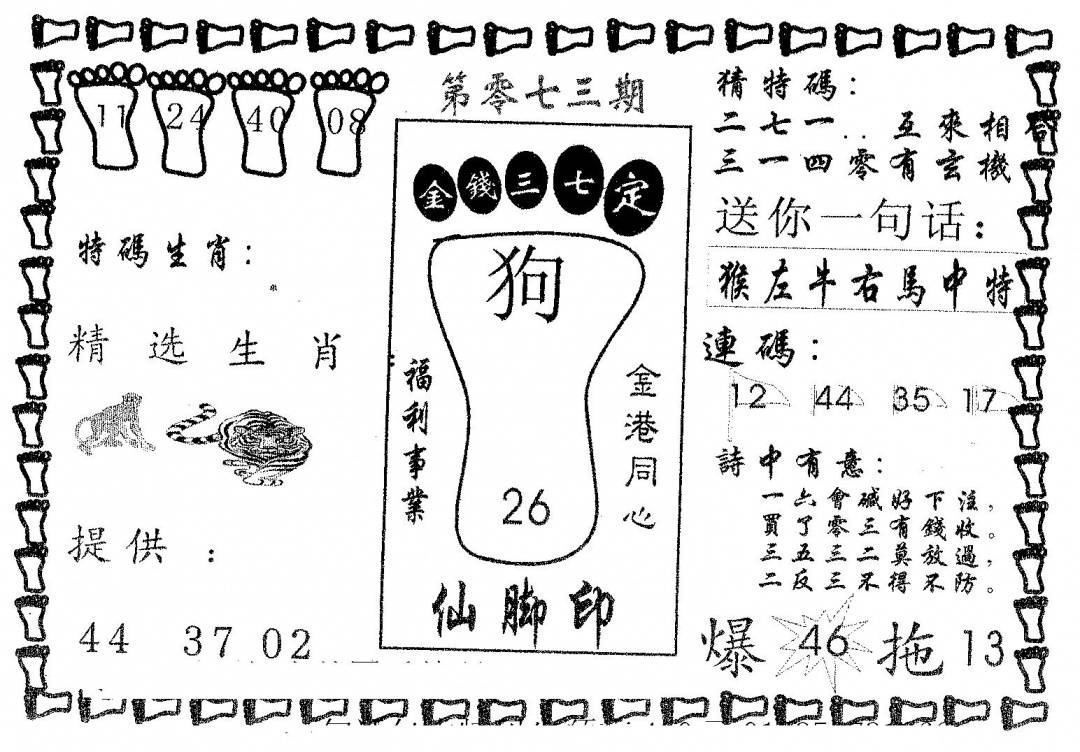 第零七三期
11 24 40 08
特碼生肖:
精选生肖:
提供:
44 37 02
金錢三七定
狗
福利事業
金港同心
26
仙脚印
猜特碼:
二七一..互來相合
三一四零有玄機
送你一句话:
猴左牛右馬中特
連碼:
12 44 35 17
詩中有意:
一六會碱好下注,
買了零三有錢收。
三五三二莫放過,
二反三不得不防。
爆 46 拖 13